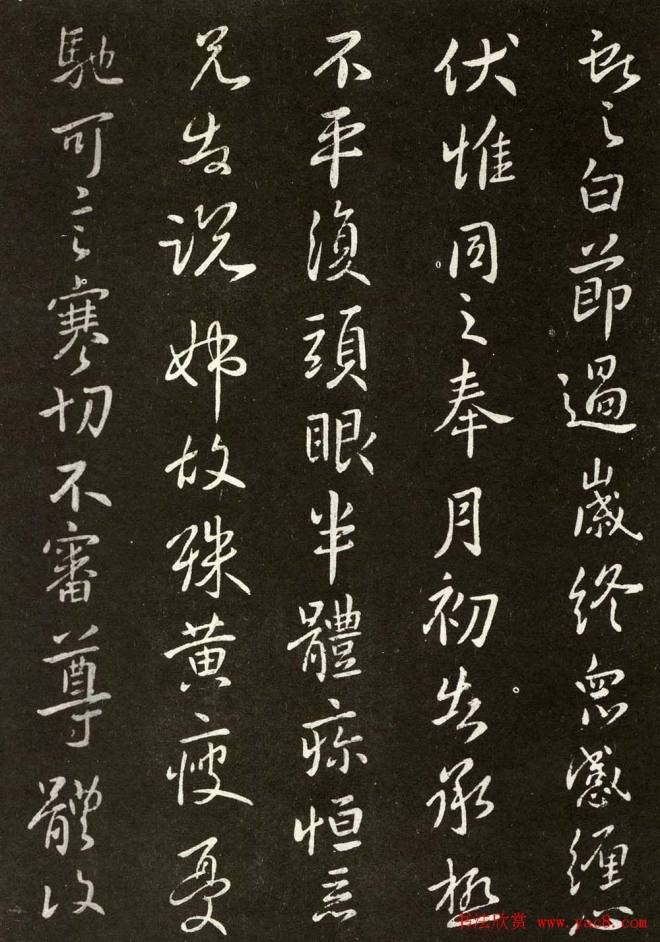 獻之白節過歲終眾感纏心
伏惟同之奉月初告承極
不平復頭眼半體疼恒惡
兄告說姊故殊黃瘦憂
馳可言寒切不審尊體復
书法欣赏 www.yac8.com